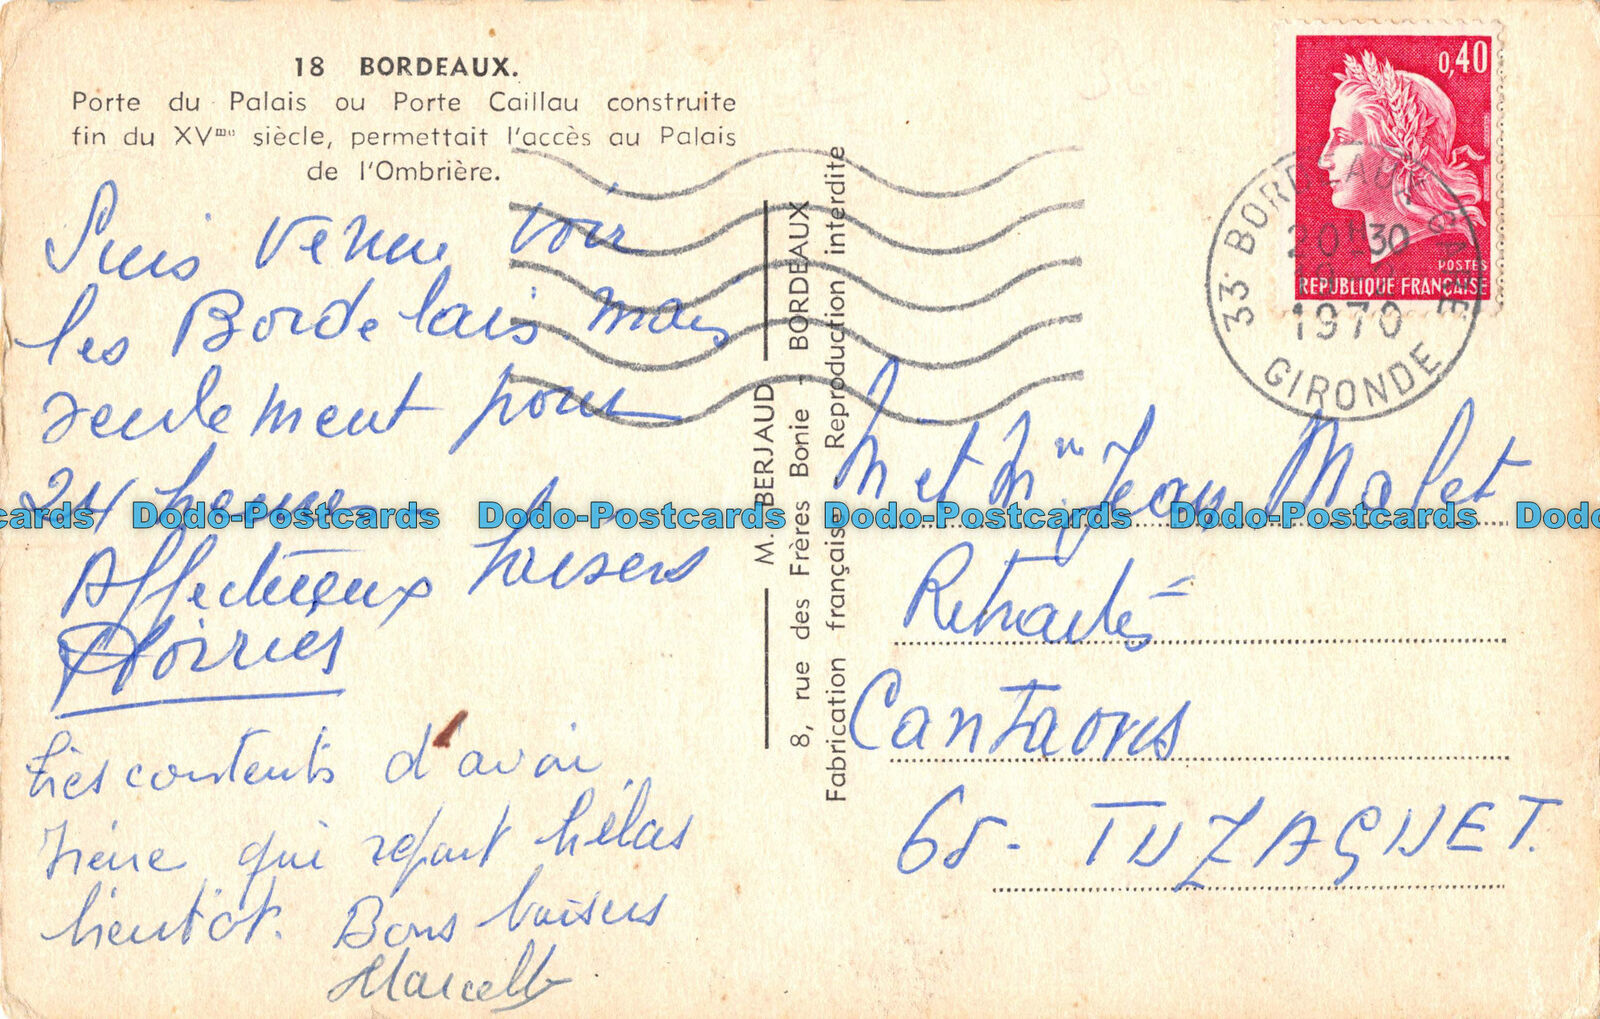 18 BORDEAUX.
Porte du Palais ou Porte Caillau construite
fin du XVme siècle, permettait l'accès au Palais
de l'Ombrière.
Suis venue voir
les Bordelais mais
seulement pour
24 heures
Affectueux baisers
Très contents d'avoir
qui repart hélas
bientôt. Bons baisers
Marcelle
M. BERJAUD
8, rue des Frères Bonie - BORDEAUX
Fabrication française Reproduction interdite
0,40
POSTES
REPUBLIQUE FRANÇAISE
33 BORDEAUX
20H30
1970
GIRONDE
M et Mme Jean Malet
Retraités
Cantaous
65 - TUZAGUET.
Dodo-Postcards Dodo-Postcards Dodo-Postcards Dodo-Postcards